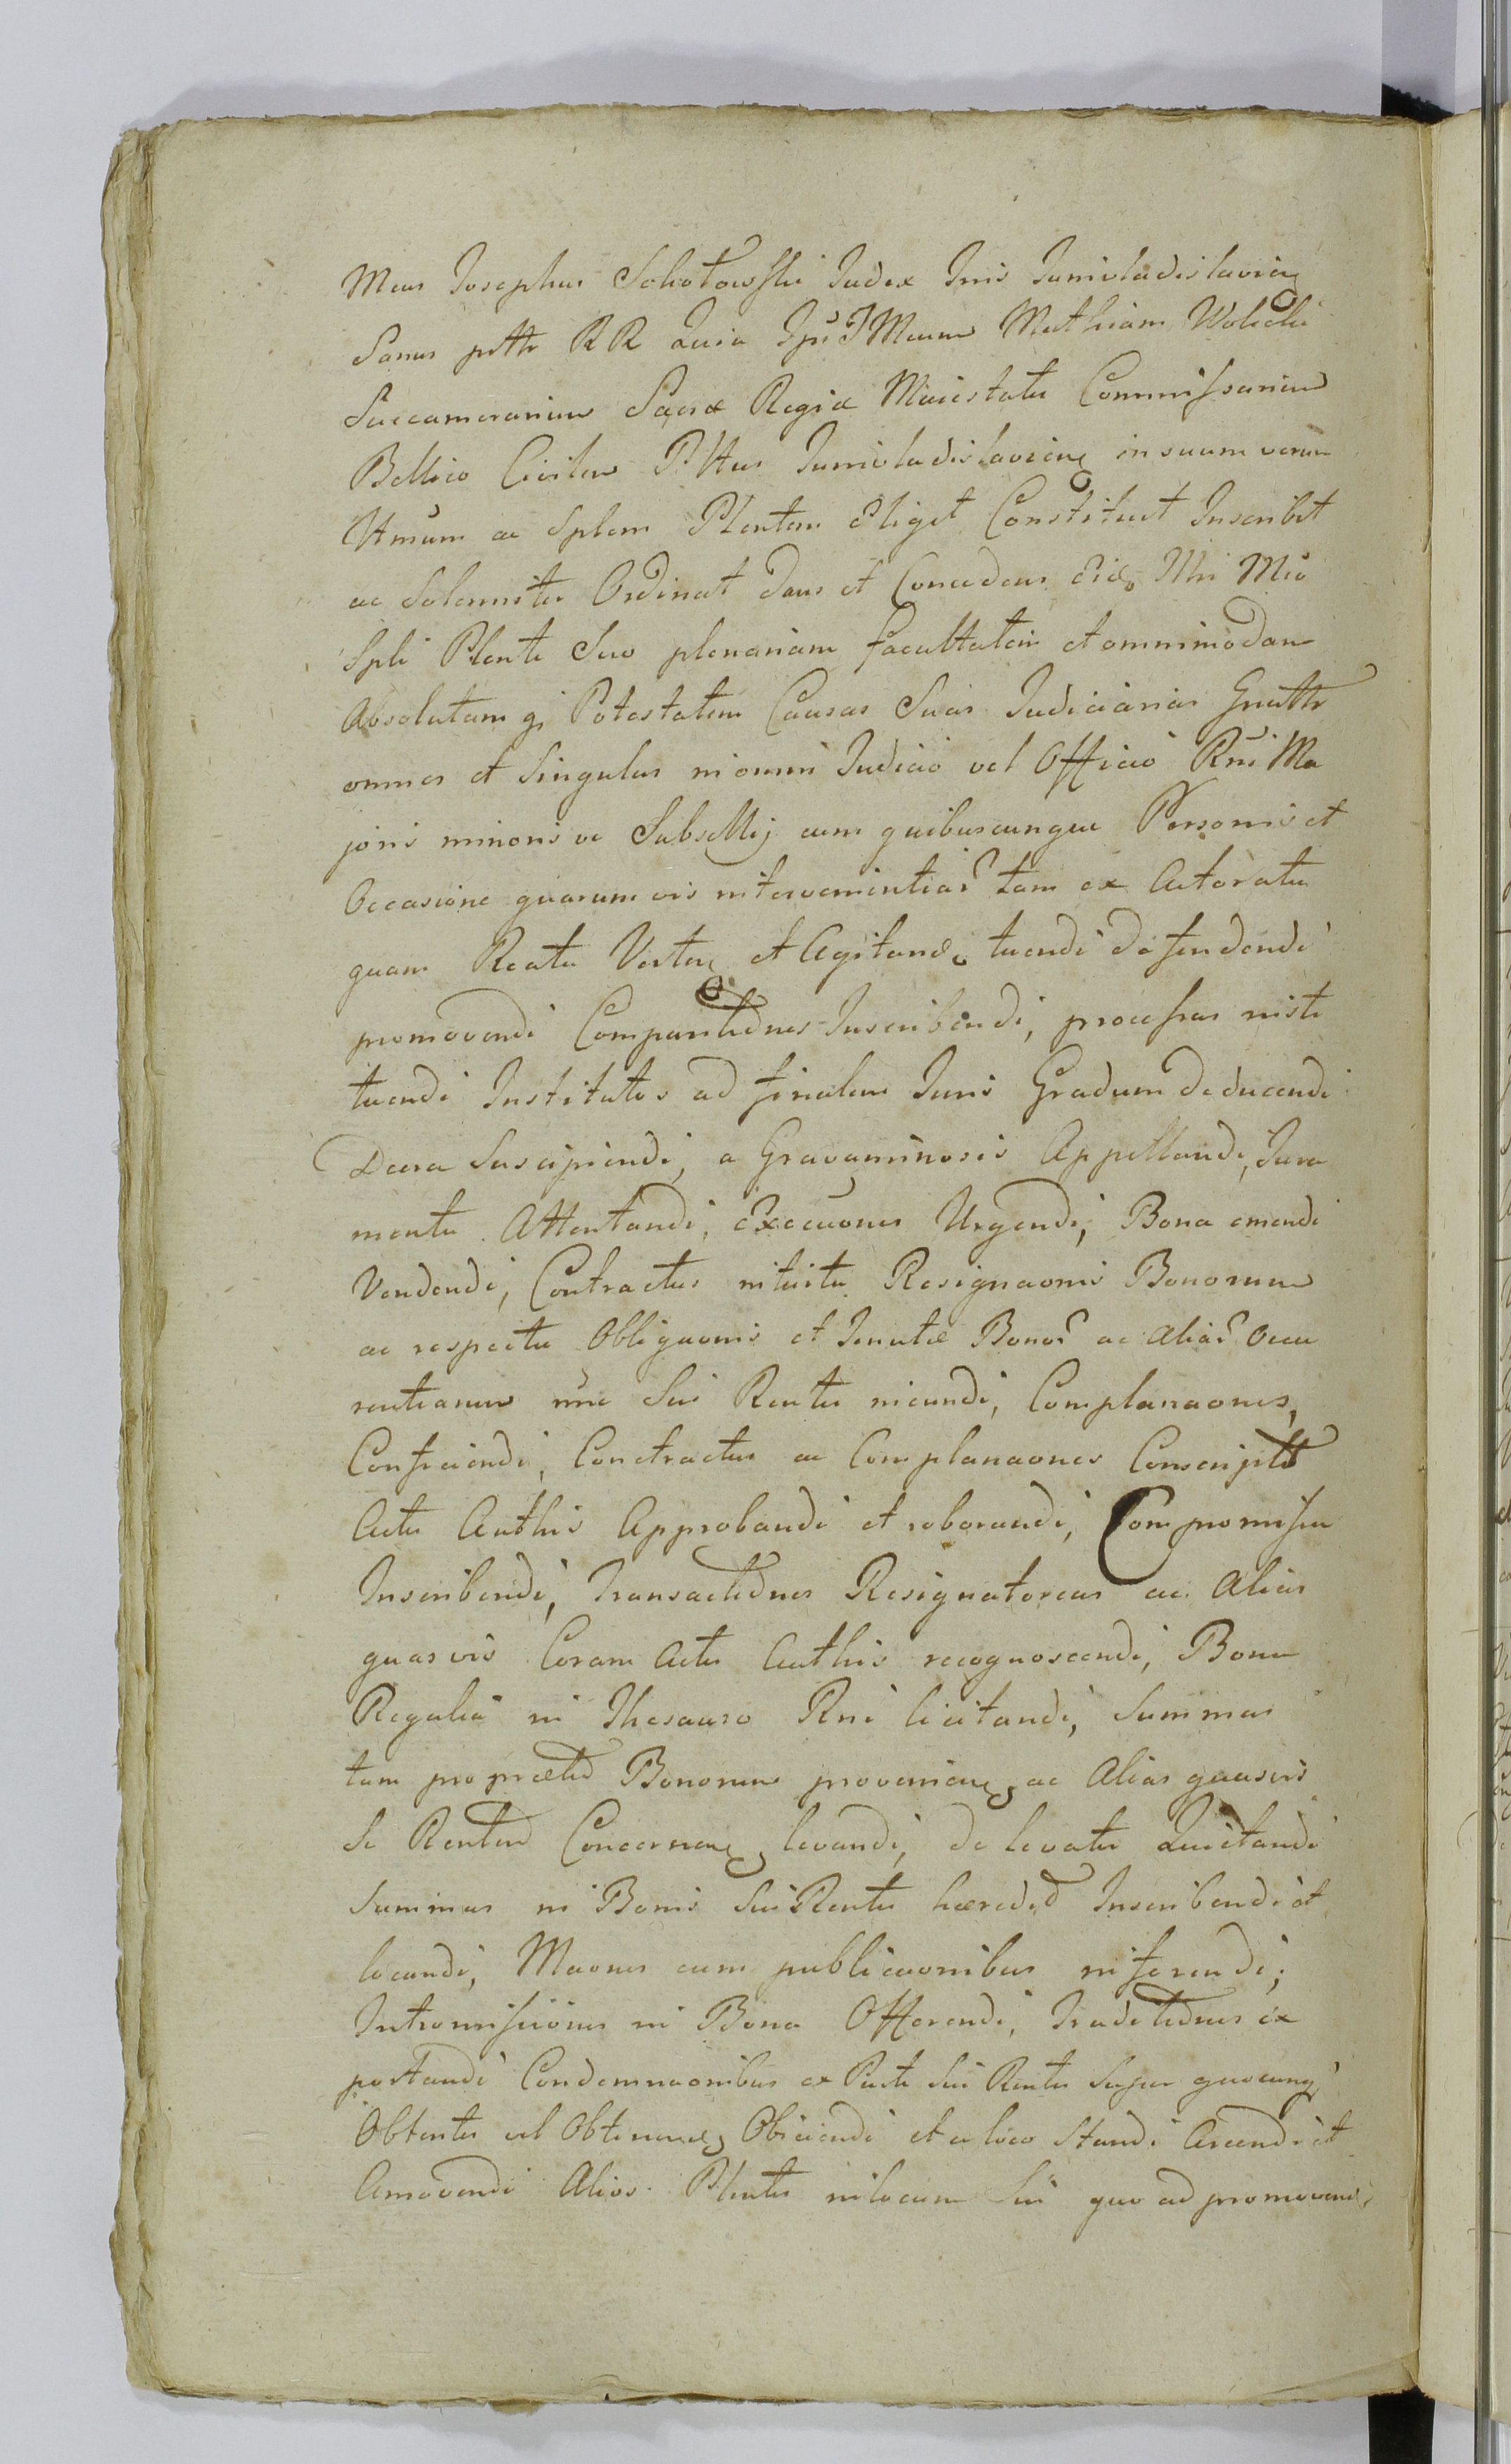 Mcus Josephus Sokołowski Judex Tris Junivladislavien
Sanus ptt RR Quia Ipse Mcum Mathiam Wolicki
Succamerarium Sacræ Regiæ Maiestatis Commissarium
Bellico Civilem P:ttus Junivladislavien in suum verum
Ltmum ac Splem Plentem Eliget Constituet Inscribet
ac Solenniter Ordinat Dans et Concedens Eid Mco
Spli Plenti Suo plenariam facultatem et omnimodam
Absolutam q Potestatem Causas Suas Judiciarias Gnatt
omnes et Singulas in omni Judicio vel Officio Rni Ma
joris minoris ve Subsellij cum quibuscunque Personis et
Occasione quarum vis intervenientiar tam ex Actoratu
quam Reatu Verten et Agitand tuendi defendendi
promovendi Comparitiones Inscribendi, processus insti
tuendi Institutos ad finalem Juris Gradum deducendi
Decra Suscipiendi, a Gravaminosis Appellandi, Jura
menta Attentandi, Execuones Urgendi, Bona emendi
Vendendi, Contractus intuitu Resignaonis Bonorum
ac respectu Obligaonis et Tenutæ Bonor ac Aliar Occu
rentiarum nne Sui Rentis ineundi, Complanaones,
Conficiendi, Contractus ac Complanaones Conscript
Actis Authis Approbandi et roborandi, Compromissa
Inscribendi, Transactiones Resignatoreas ac Alias
quasvis Coram Actis Authis recognoscendi, Bona
Regalia in Thesauro Rni licitandi, Summas
tam pro prætio Bonorum provenien ac Alias quasvis
Se Rentem Concernen levandi, de levatis Quietandi
Summas in Bonis Sui Rentis hæredit Inscribendi et
locandi, Maones cum publicaonibus inferendi,
Intromissiones in Bona Offerendi, Traditiones ex
postandi Condemnaonibus ex Parte Sui Rentis Super quocunq
Obtentis vel Obtinend Obiciendi et a loco Standi Arcendi et
Amovendi Alios Plentes in locum Sui quo ad promovend